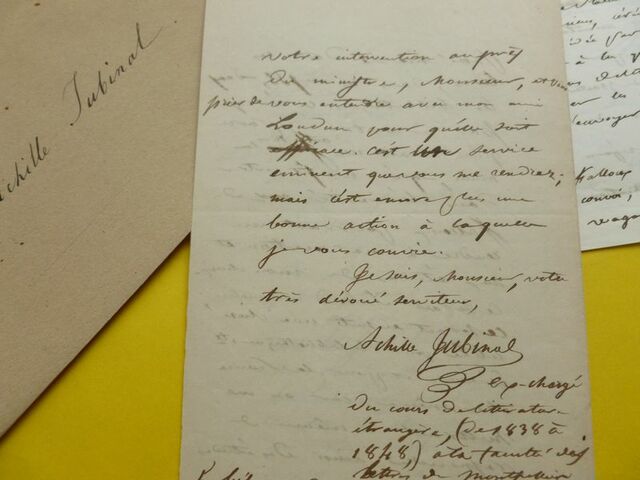 Achille Jubinal
votre intervention auprès
du ministre, Monsieur, et vous
prier de vous entendre avec mon ami
Loudun pour qu'elle soit
efficace. C'est un service
éminent que vous me rendrez;
mais c'est encore plus une
bonne action à laquelle
je vous convie.
Je suis, Monsieur, votre
très dévoué serviteur,
Achille Jubinal
ex-chargé
du cours de littérature
étrangère, (de 1838 à
1848,) à la faculté des
lettres de Montpellier